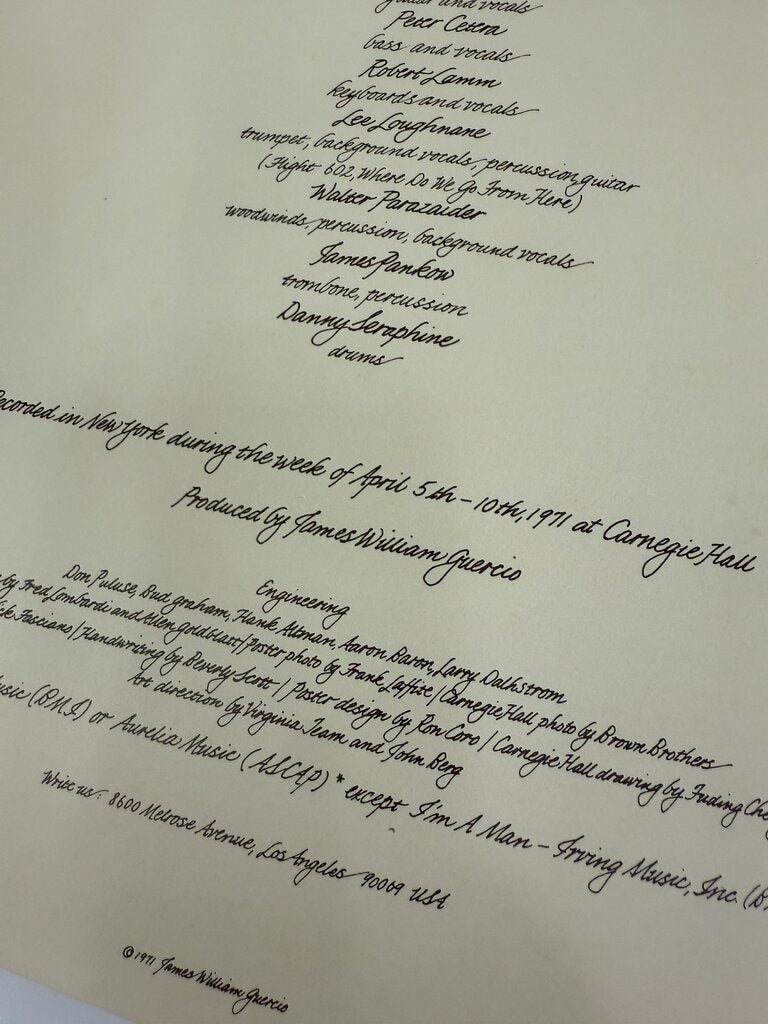 guitar and vocals
Peter Cetera
bass and vocals
Robert Lamm
keyboards and vocals
Lee Loughnane
trumpet, background vocals, percussion, guitar
(Flight 602, Where Do We Go From Here)
Walter Parazaider
woodwinds, percussion, background vocals
James Pankow
trombone, percussion
Danny Seraphine
drums
Recorded in New York during the week of April 5th - 10th, 1971 at Carnegie Hall
Produced by James William Guercio
Engineering
Don Puluse, Bud graham, Hank Altman, Aaron Baron, Larry Dalhstrom
by Fred Lombardi and Allen goldblatt / Poster photo by Frank Laffite / Carnegie Hall photo by Brown Brothers
Fascians / Handwriting by Beverly Scott / Poster design by Ron Coro / Carnegie Hall drawing by Fuding
Art direction by Virginia Team and John Berg
Music (BMI) or Aurelia Music (ASCAP) * except I'm A Man - Irving Music, Inc.
Write us: 8600 Melrose Avenue, Los Angeles 90069 USA
© 1971 James William Guercio